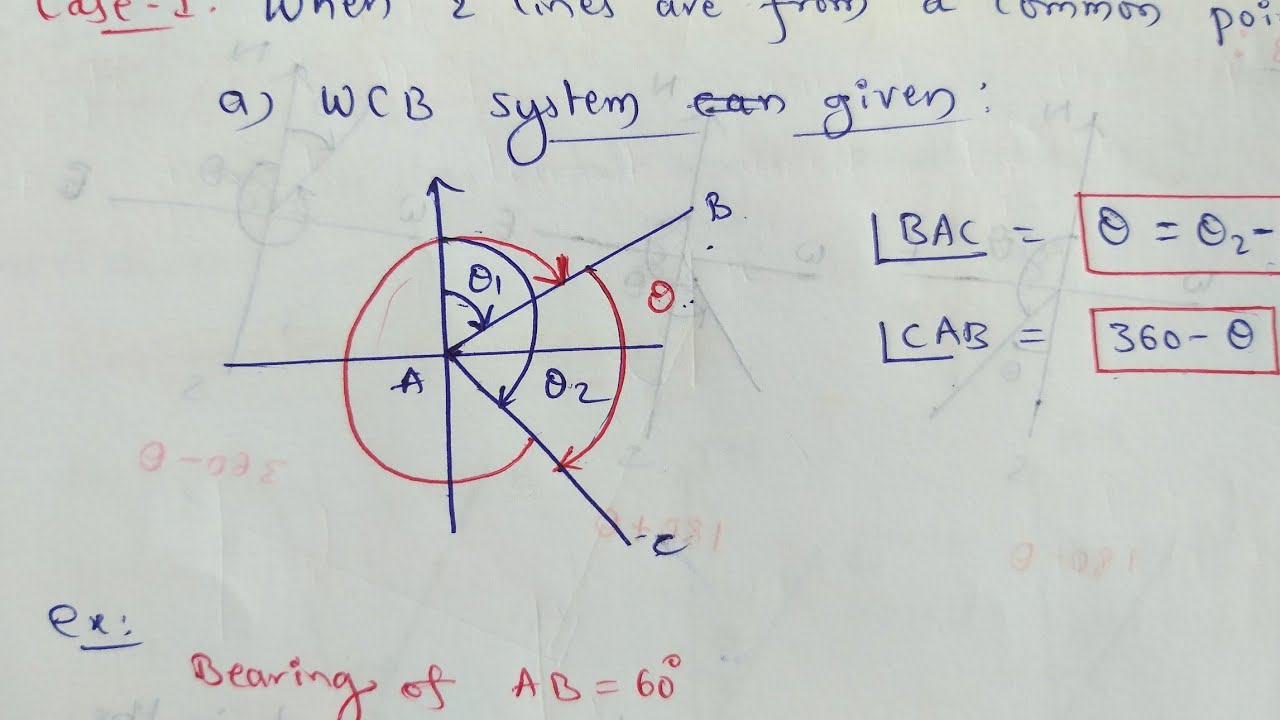 Case-1: When 2 lines are from a common poi
a) WCB system can given:
B.
θ1
θ
A
θ2
C
∠BAC = θ = θ2 -
∠CAB = 360 - θ
ex:
Bearing of AB = 60°